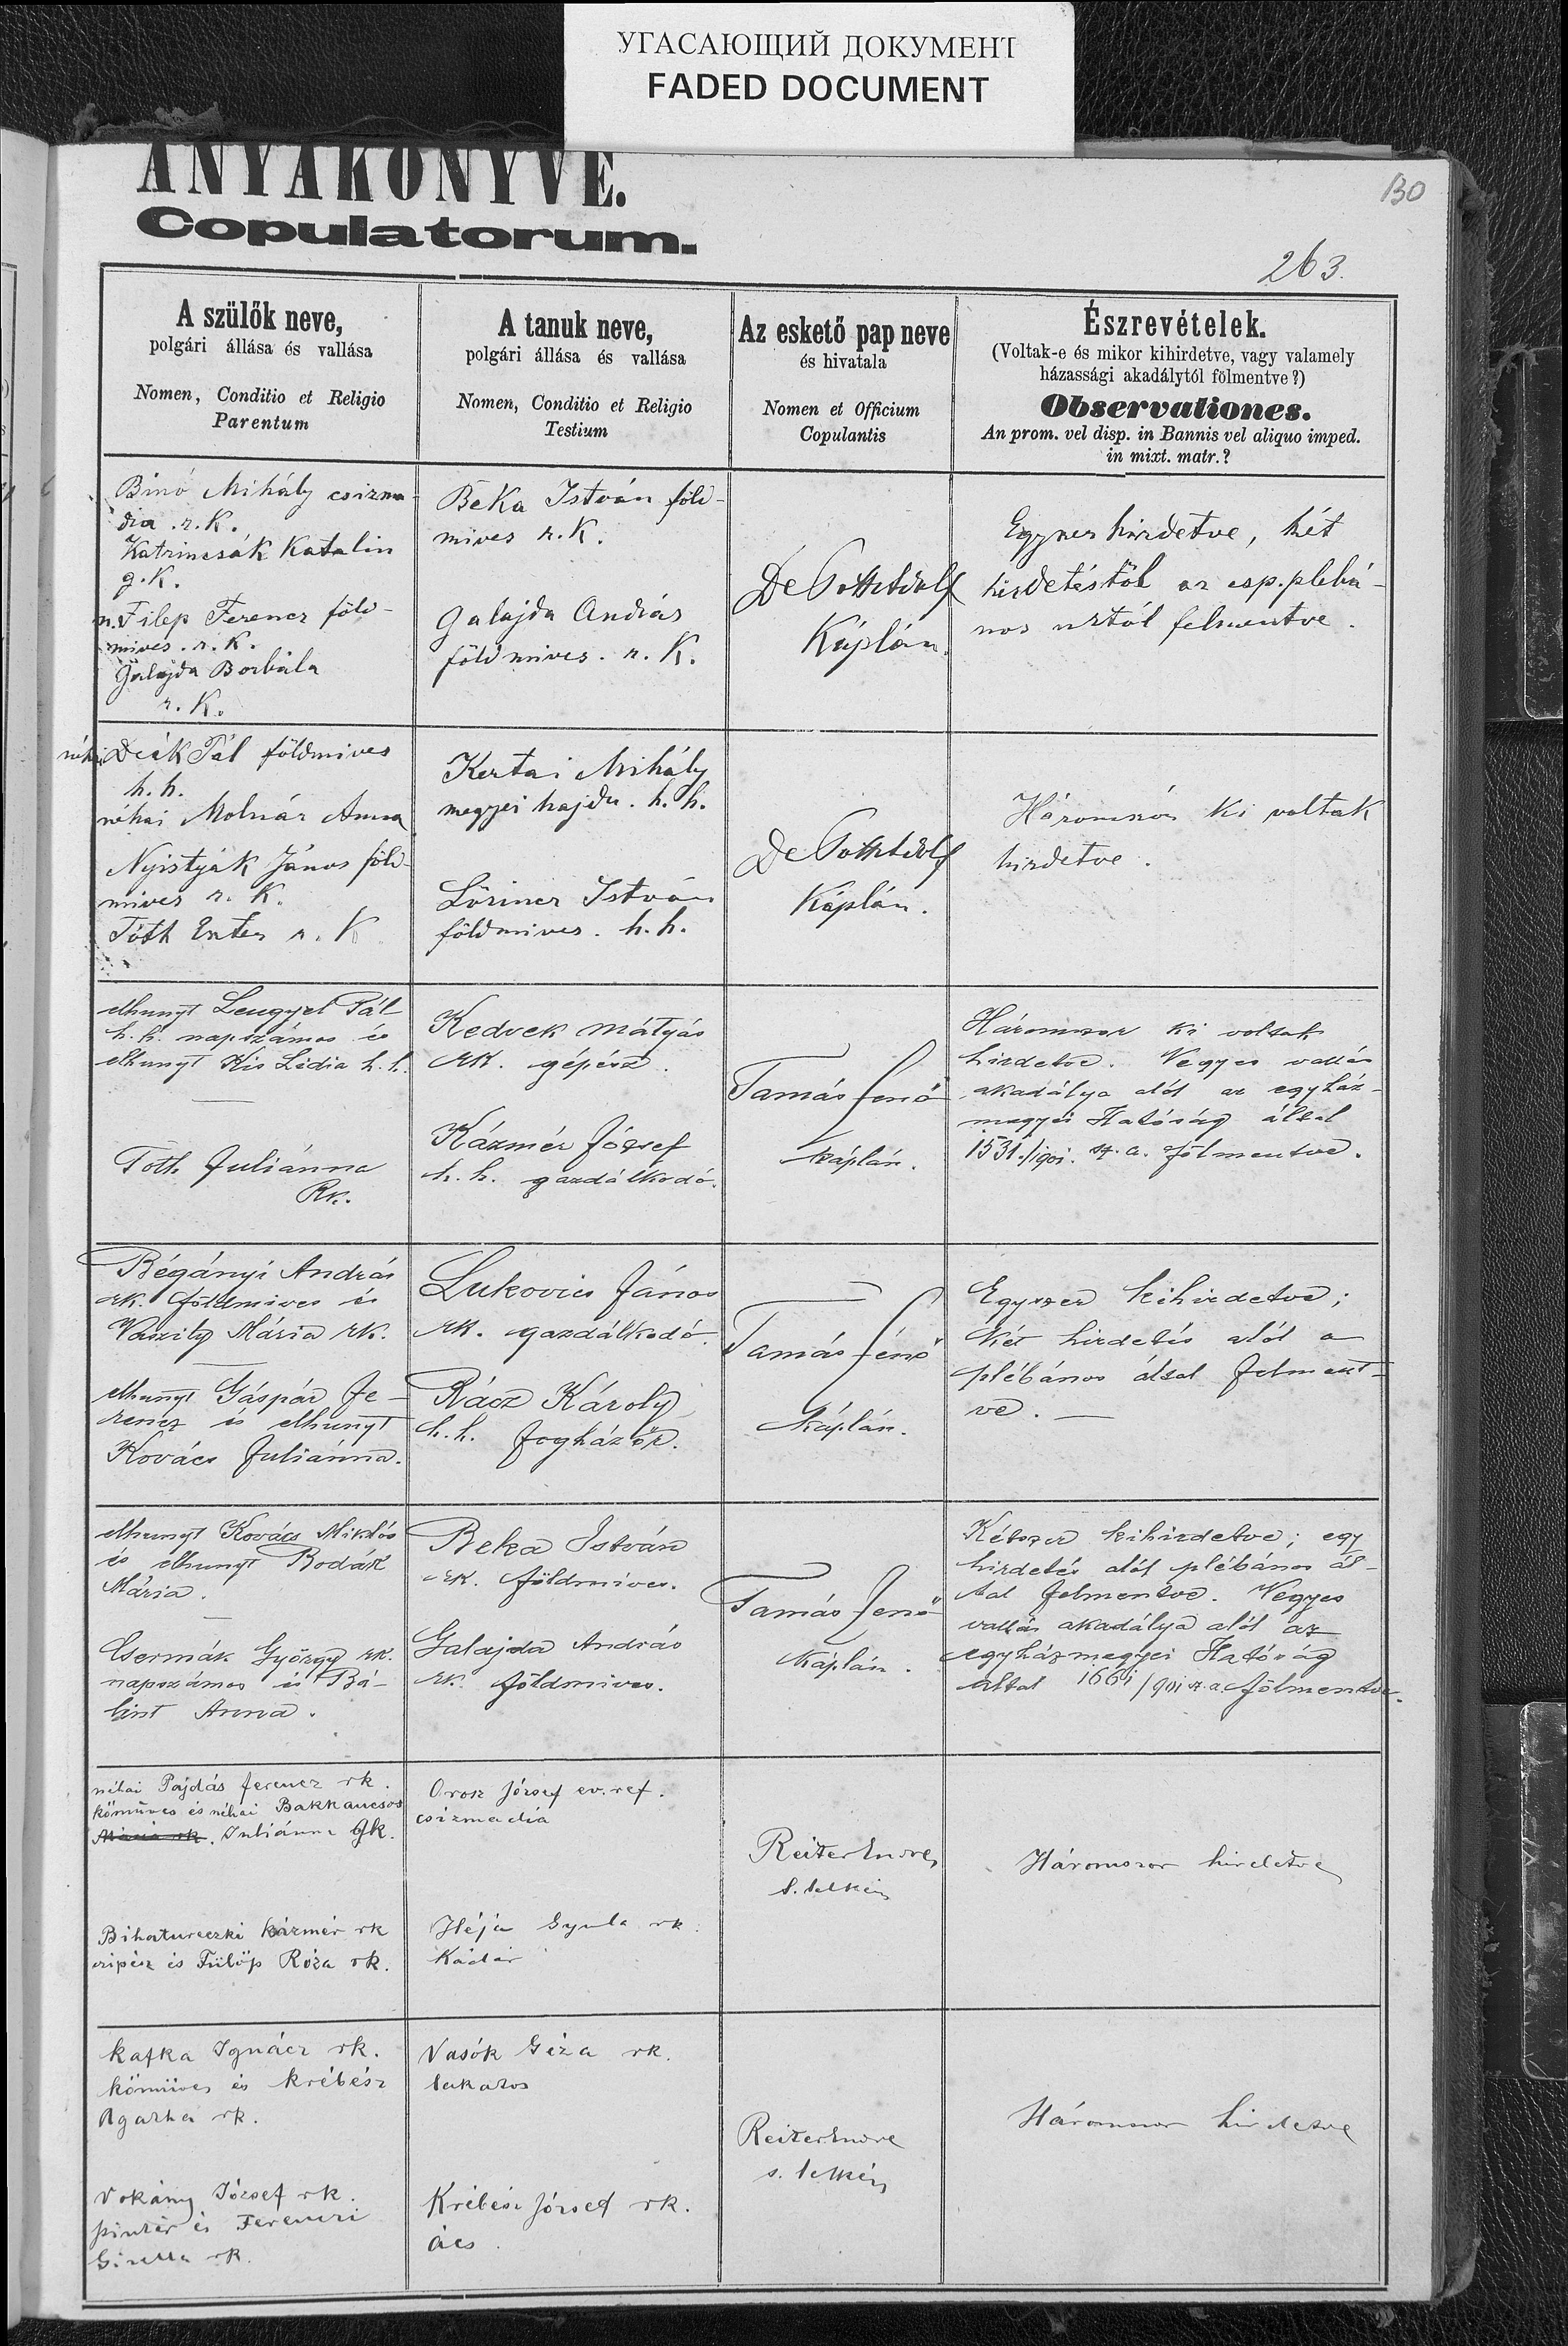 УГАСАЮЩИЙ ДОКУМЕНТ
FADED DOCUMENT
ANYAKÖNYVE.
Copulatorum.
130
263.
A szülők neve,
polgári állása és vallása
Nomen, Conditio et Religio
Parentum
A tanuk neve,
polgári állása és vallása
Nomen, Conditio et Religio
Testium
Az eskető pap neve
és hivatala
Nomen et Officium
Copulantis
Észrevételek.
(Voltak-e és mikor kihirdetve, vagy valamely
házassági akadálytól fölmentve?)
Observationes.
An prom. vel disp. in Bannis vel aliquo imped.
in mixt. matr.?
Binó Mihály csizma-
dia . r. K.
Katrincsák Katalin
g. K.
n. Filep Ferencz föld-
mives . r. K.
Galajda Borbála
r. K.
Beka István föld-
mives r. K.
Galajda András
földmives . r. K.
Káplán.
Egyszer hirdetve, két
hirdetéstől az esp. plebá-
nos úrtól felmentve.
néhai Deák Pál földmives
h. h.
néhai Molnár Anna
Nyistyák János föld-
mives r. K.
Tóth Eszter r. K
Kertai Mihály
megyei hajdu . h. h.
Lőrincz István
földmives . h. h.
Káplán.
Háromszor ki voltak
hirdetve.
elhunyt Lengyel Pál
h. h. napszámos és
elhunyt Kis Lidia h. h.
Tóth Juliánna
Rk.
Kedvek Mátyás
rk. gépész.
Kázmér József
h. h. gazdálkodó.
Tamás Jenő
káplán.
Háromszor ki voltak
hirdetve. Vegyes vallás
akadálya alól az egyház-
megyei Hatóság által
1531./901. sz. a. fölmentve.
Bégányi András
rk. földmives és
Vaszily Mária rk.
elhunyt Gáspár Fe-
rencz és elhunyt
Kovács Juliánna.
Lukovics János
rk. gazdálkodó.
Rácz Károly
h. h. fogházőr.
Tamás Jenő
káplán.
Egyszer kihirdetve;
két hirdetés alól a
plébános által felment-
ve. —
elhunyt Kovács Miklós
és elhunyt Bodák
Mária.
Csermák György rk.
napszámos és Bá-
lint Anna.
Beka István
rk. földmives.
Galajda András
rk. földmives.
Tamás Jenő
káplán.
Kétszer kihirdetve; egy
hirdetés alól plébános ál-
tal felmentve. Vegyes
vallás akadálya alól az
egyházmegyei Hatóság
által 1661/901 sz. a. fölmentve.
néhai Pajdás Ferencz rk.
kőmüves és néhai Bakkancsos
Mária rk. Juliánna gk.
Bihatureczki Kázmér rk
czipész és Fülöp Róza rk.
Orosz József ev. ref.
csizmadia
Héja Gyula rk.
Kádár
Reiter Endre
s. lelkész
Háromszor hirdetve
Kafka Ignácz rk.
kőmüves és Krébész
Agatha rk.
Vokány József rk.
pintér és Ferenczi
Gizella rk.
Vasók Géza rk.
lakatos
Krébész József rk.
ács
Reiter Endre
s. lelkész
Háromszor hirdetve